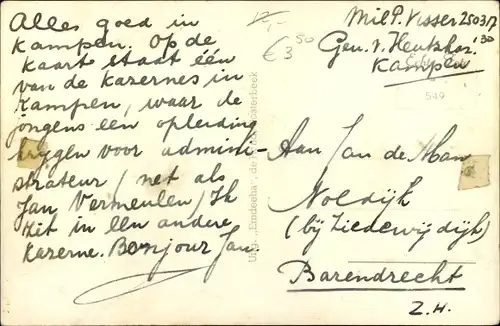 Alles goed in
Kampen. Op de
kaart staat één
van de kazernes in
Kampen, waar de
jongens een opleiding
krygen voor admini-
strateur, net als
Jan Vermeulen, Ik
zit in een andere
kazerne. Bonjour Jan.
€ 3,50
Mil P. Visser 250317
'30
Gen. v. Heutskaz.
Kampen
549
Aan Jan de Man
Noldijk
(bij Ziedewijdijk)
Barendrecht
Z.H.